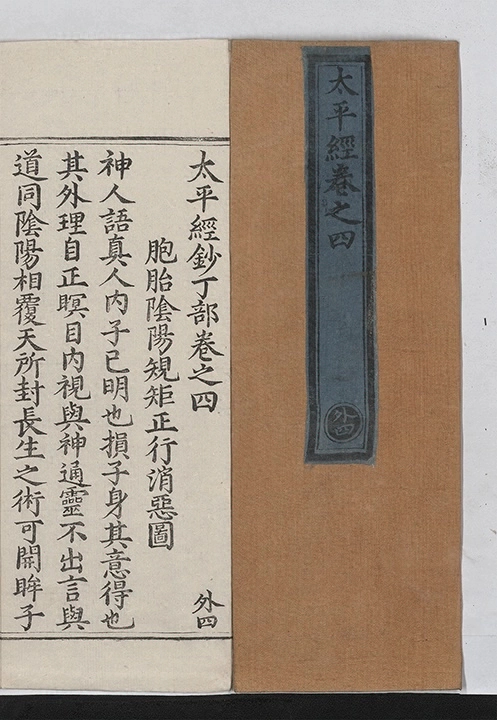 太平經卷之四
外四
太平經鈔丁部卷之四
外四
胞胎陰陽規矩正行消惡圖
神人語真人內子已明也損子身其意得也
其外理自正瞑目內視與神通靈不出言與
道同陰陽相覆天所封長生之術可開眸子